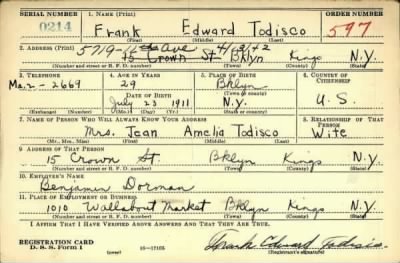 SERIAL NUMBER 1. NAME (Print) ORDER NUMBER
0214 Frank Edward Todisco 597
(First) (Middle) (Last)
2. ADDRESS (Print) 5719 - Ave 4/3/42
15 Crown St. Bklyn Kings N.Y.
(Number and street or R. F. D. number) (Town) (County) (State)
3. TELEPHONE 4. AGE IN YEARS 5. PLACE OF BIRTH 6. COUNTRY OF CITIZENSHIP
Ma. 2 - 2669 29 Bklyn
DATE OF BIRTH (Town or county)
July 23 1911 N.Y. U.S.
(Exchange) (Number) (Mo.) (Day) (Yr.) (State or country)
7. NAME OF PERSON WHO WILL ALWAYS KNOW YOUR ADDRESS 8. RELATIONSHIP OF THAT PERSON
Mrs. Jean Amelia Todisco Wife
(Mr., Mrs., Miss) (First) (Middle) (Last)
9. ADDRESS OF THAT PERSON
15 Crown St. Bklyn Kings N.Y.
(Number and street or R. F. D. number) (Town) (County) (State)
10. EMPLOYER'S NAME
Benjamin Dorman
11. PLACE OF EMPLOYMENT OR BUSINESS
1010 Wallabout Market Bklyn Kings N.Y.
(Number and street or R. F. D. number) (Town) (County) (State)
I AFFIRM THAT I HAVE VERIFIED ABOVE ANSWERS AND THAT THEY ARE TRUE.
REGISTRATION CARD
D. S. S. Form 1 (over) 16-17105 Frank Edward Todisco
(Registrant's signature)